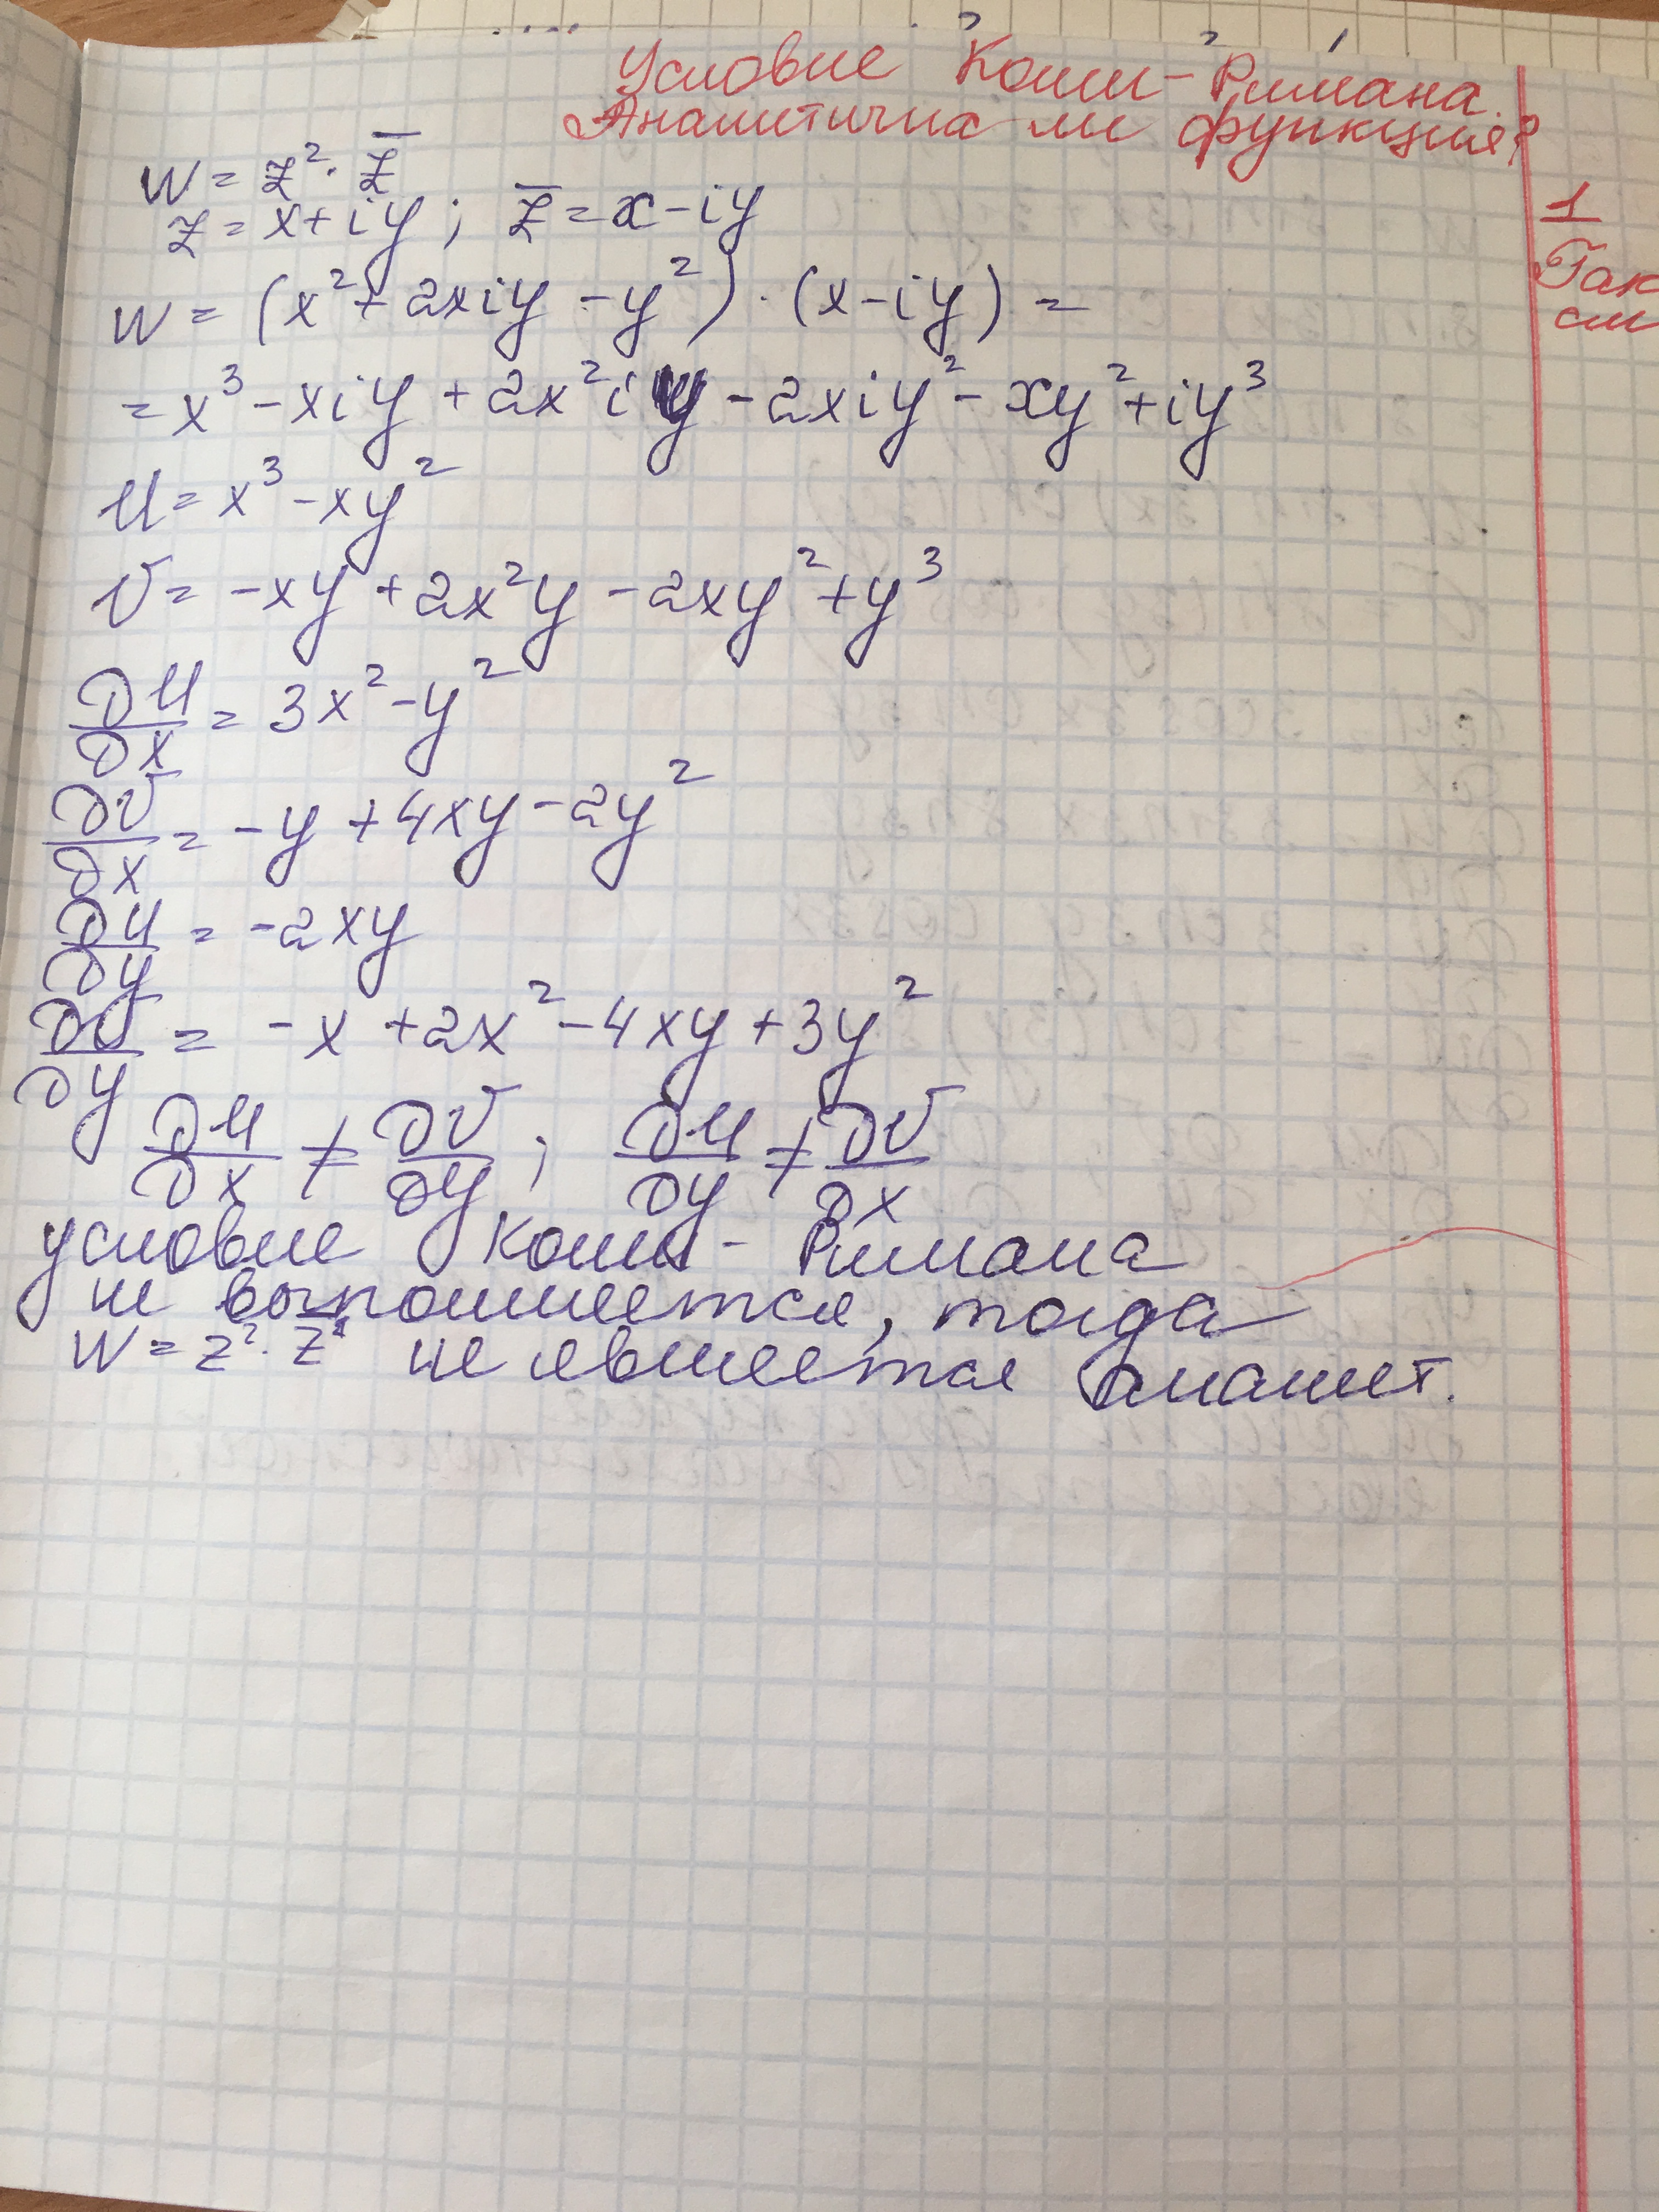 Условие Коши-Римана.
Аналитична ли функция?
W = z² · z̅
z = x + iy ; z̅ = x - iy
W = (x² + 2xiy - y²) · (x - iy) =
= x³ - xiy + 2x²iy - 2xiy² - xy² + iy³
U = x³ - xy²
V = -xy + 2x²y - 2xy² + y³
∂U/∂x = 3x² - y²
∂V/∂x = -y + 4xy - 2y²
∂U/∂y = -2xy
∂V/∂y = -x + 2x² - 4xy + 3y²
∂U/∂x ≠ ∂V/∂y ; ∂U/∂y ≠ ∂V/∂x
условие Коши-Римана
не выполняется, тогда
W = z² · z̅ не является аналит.
1